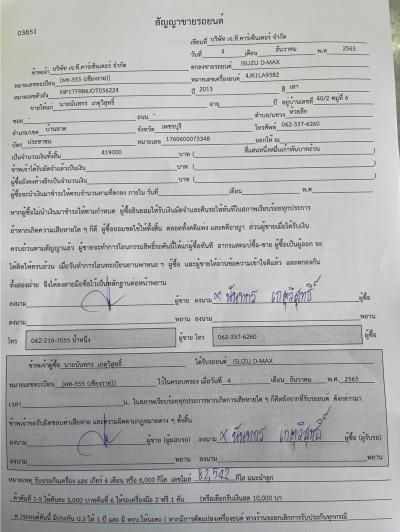 สัญญาขายรถยนต์
03851
เขียนที่ บริษัท เจ.ที.คาร์เซ็นเตอร์ จำกัด
วันที่ 4 เดือน ธันวาคม พ.ศ 2565
ข้าพเจ้า บริษัท เจ.ที.คาร์เซ็นเตอร์ จำกัด ตกลงขายรถยนต์ ISUZU D-MAX
หมายเลขทะเบียน [ผท-355 (เชียงราย)] หมายเลขเครื่องยนต์ 4JK1LA9582
หมายเลขตัวถัง MP1TFR86JDT056224 ปี 2013 สี เทา
ขายให้แก่ นายนันทกร เกตุวิสุทธิ์ อายุ ปี อยู่บ้านเลขที่ 40/2 หมู่ที่ 6
ซอย - ถนน - ตำบล/แขวง ห้วยลึก
อำเภอ/เขต บ้านลาด จังหวัด เพชรบุรี โทรศัพท์ 062-337-6260
บัตร ประชาชน หมายเลข 1760600075348 ออกให้ ณ
เป็นจำนวนเงินทั้งสิ้น 419000 บาท ( สี่แสนหนึ่งหมื่นเก้าพันบาทถ้วน )
ข้าพเจ้าได้รับมัดจำแล้วเป็นเงิน บาท ( )
ผู้ซื้อยังคงค้างอีกเป็นจำนวนเงิน บาท ( )
ผู้ซื้อจะนำเงินมาชำระให้ครบจำนวนตามที่ตกลง ภายใน วันที่ เดือน พ.ศ
หากผู้ซื้อไม่นำเงินมาชำระให้ตามกำหนด ผู้ซื้อยินยอมให้ริบเงินมัดจำและคืนรถให้ทันทีในสภาพเรียบร้อยทุกประการ
ถ้าหากเกิดความเสียหายใด ๆ ก็ดี ผู้ซื้อยอมชดใช้ให้ทั้งสิ้น ตลอดทั้งคดีแพ่ง และคดีอาญา ส่วนผู้ขายเมื่อได้รับเงิน
ครบถ้วนตามสัญญาแล้ว ผู้ขายจะทำการโอนกรรมสิทธิ์รถคันนี้ให้แก่ผู้ซื้อทันที
ได้ติดให้ครบถ้วน เมื่อวันทำการโอนทะเบียนยานพาหนะ ๆ ผู้ซื้อ และผู้ขายได้อ่านข้อความเข้าใจดีแล้ว และตกลงกัน
ทั้งสองฝ่าย จึงได้ลงลายมือชื่อไว้เป็นหลักฐานต่อหน้าพยาน
ลงนาม ผู้ขาย ลงนาม x นันทกร เกตุวิสุทธิ์ ผู้ซื้อ
ลงนาม พยาน ลงนาม พยาน
ผู้ขาย โทร 062-216-7055 น้ำหนึ่ง ผู้ขาย โทร 062-337-6260 ผู้ซื้อ
ข้าพเจ้าผู้ซื้อ นายนันทกร เกตุวิสุทธิ์ ได้รับรถยนต์ ISUZU D-MAX
หมายเลขทะเบียน [ผท-355 (เชียงราย)] ไว้ในครอบครอง เมื่อวันที่ 4 เดือน ธันวาคม พ.ศ. 2565
เวลา น. ในสภาพเรียบร้อยทุกประการหากเกิดการเสียหายใด ๆ ก็ดีหลังจากที่รับรถยนต์ ดังกล่าวมา
ข้าพเจ้าขอรับผิดชอบค่าเสียหาย และความผิดตามกฎหมายต่าง ๆ ทั้งสิ้น
ลงนาม ผู้ขาย (ผู้มอบรถ) ลงนาม x นันทกร เกตุวิสุทธิ์ ผู้ซื้อ (ผู้รับรถ)
ลงนาม พยาน ลงนาม พยาน
หมายเหตุ รับประกันเครื่อง และ เกียร์ 6 เดือน หรือ 6,000 กิโล เลขไมล์ 82,542 กิโล แนะนำลูก
ค้าคันที่ 1-5 ให้คันละ 3,000 บาทคันที่ 6 ให้รถเครื่องมือ 2 ฟรี 1 คัน (หรือเลือกรับเงินสด 10,000 บา